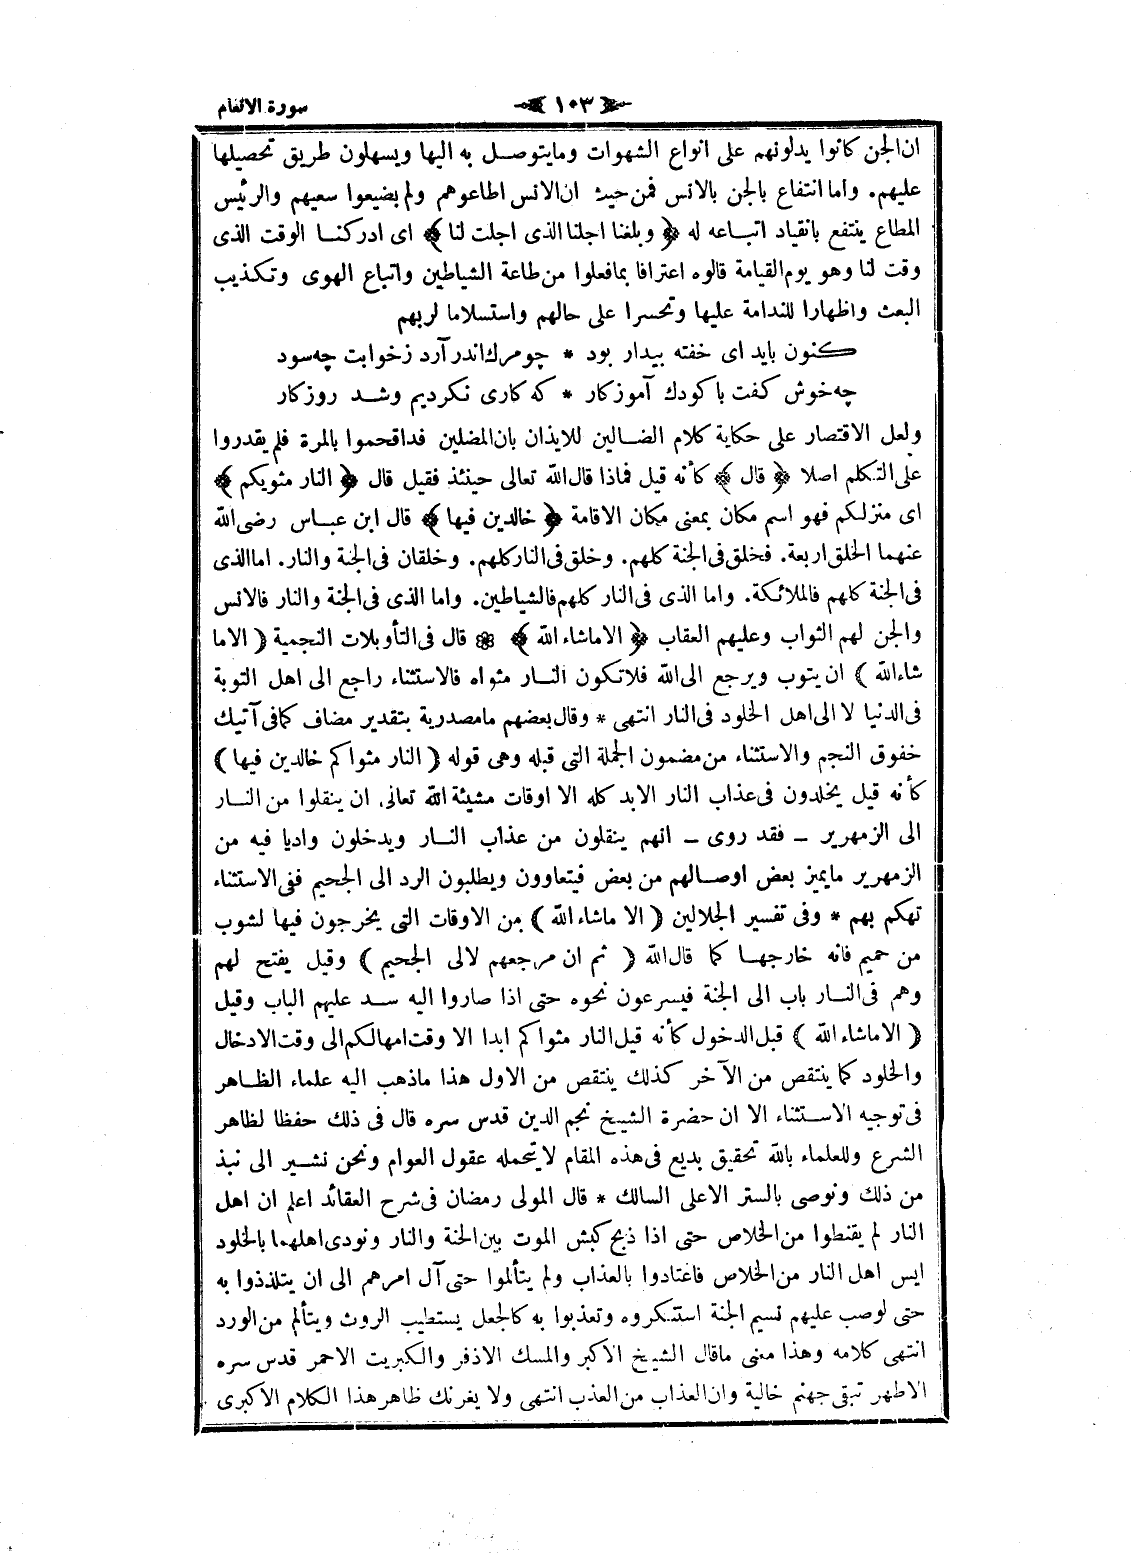 سورة الانعام
١٠٣
ان الجن كانوا يدلونهم على انواع الشهوات ومايتوصل به اليها ويسهلون طريق تحصيلها
عليهم. واما انتفاع بالجن بالانس فمن حيث ان الانس اطاعوهم ولم يضيعوا سعيهم والرئيس
المطاع ينتفع بانقياد اتباعه له ﴿ وبلغنا اجلنا الذى اجلت لنا ﴾ اى ادركنا الوقت الذى
وقت لنا وهو يوم القيامة قالوه اعترافا بمافعلوا من طاعة الشياطين واتباع الهوى وتكذيب
البعث واظهارا للندامة عليها وتحسرا على حالهم واستسلاما لربهم
كنون بايد اى خفته بيدار بود * چومرك اندر آرد زخوابت چه سود
چه خوش كفت باكودك آموزكار * كه كارى نكرديم وشد روزكار
ولعل الاقتصار على حكاية كلام الضالين للايذان بان المضلين قداقحموا بالمرة فلم يقدروا
على التكلم اصلا ﴿ قال ﴾ كأنه قيل فماذا قال الله تعالى حينئذ فقيل قال ﴿ النار مثويكم ﴾
اى منزلكم فهو اسم مكان بمعنى مكان الاقامة ﴿ خالدين فيها ﴾ قال ابن عباس رضى الله
عنهما الخلق اربعة. فخلق فى الجنة كلهم. وخلق فى النار كلهم. وخلقان فى الجنة والنار. اما الذى
فى الجنة كلهم فالملائكة. واما الذى فى النار كلهم فالشياطين. واما الذى فى الجنة والنار فالانس
والجن لهم الثواب وعليهم العقاب ﴿ الا ماشاء الله ﴾ ❀ قال فى التأويلات النجمية ( الا ما
شاء الله ) ان يتوب ويرجع الى الله فلا تكون النار مثواه فالاستثناء راجع الى اهل التوبة
فى الدنيا لا الى اهل الخلود فى النار انتهى * وقال بعضهم مامصدرية بتقدير مضاف كما فى آتيك
خفوق النجم والاستثناء من مضمون الجملة التى قبله وهى قوله ( النار مثواكم خالدين فيها )
كأنه قيل يخلدون فى عذاب النار الابد كله الا اوقات مشيئة الله تعالى ان ينقلوا من النار
الى الزمهرير ـ فقد روى ـ انهم ينقلون من عذاب النار ويدخلون واديا فيه من
الزمهرير مايميز بعض اوصالهم من بعض فيتعاوون ويطلبون الرد الى الجحيم ففى الاستثناء
تهكم بهم * وفى تفسير الجلالين ( الا ماشاء الله ) من الاوقات التى يخرجون فيها لشوب
من حميم فانه خارجها كما قال الله ( ثم ان مرجعهم لالى الجحيم ) وقيل يفتح لهم
وهم فى النار باب الى الجنة فيسرعون نحوه حتى اذا صاروا اليه سد عليهم الباب وقيل
( الا ماشاء الله ) قبل الدخول كأنه قيل النار مثواكم ابدا الا وقت امهالكم الى وقت الادخال
والخلود كما ينتقص من الآخر كذلك ينتقص من الاول هذا ماذهب اليه علماء الظاهر
فى توجيه الاستثناء الا ان حضرة الشيخ نجم الدين قدس سره قال فى ذلك حفظا لظاهر
الشرع وللعلماء بالله تحقيق بديع فى هذه المقام لايتحمله عقول العوام ونحن نشير الى نبذ
من ذلك ونوصى بالستر الاعلى السالك * قال المولى رمضان فى شرح العقائد اعلم ان اهل
النار لم يقنطوا من الخلاص حتى اذا ذبح كبش الموت بين الجنة والنار ونودى اهلهما بالخلود
ايس اهل النار من الخلاص فاعتادوا بالعذاب ولم يتألموا حتى آل امرهم الى ان يتلذذوا به
حتى لوصب عليهم نسيم الجنة استنكروه وتعذبوا به كالجعل يستطيب الروث ويتألم من الورد
انتهى كلامه وهذا معنى ماقال الشيخ الاكبر والمسك الاذفر والكبريت الاحمر قدس سره
الاطهر تبقى جهنم خالية وان العذاب من العذب انتهى ولا يغرنك ظاهر هذا الكلام الاكبرى